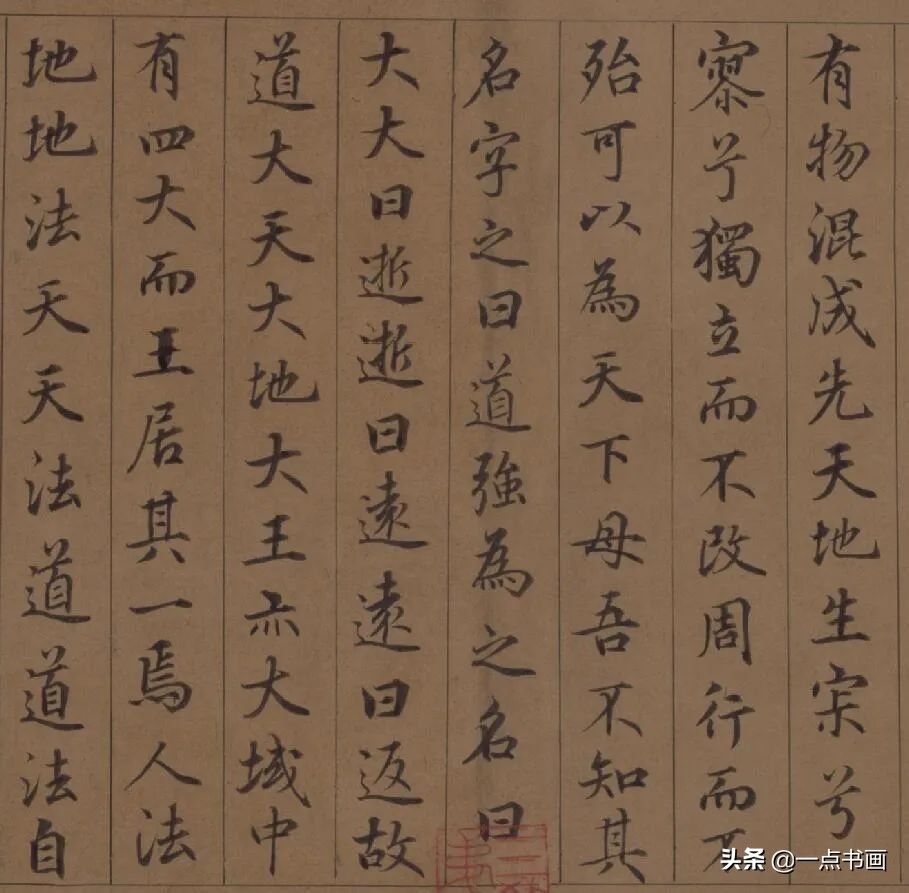 有物混成先天地生宋兮
寥兮獨立而不改周行而不
殆可以為天下母吾不知其
名字之曰道強為之名曰
大大曰逝逝曰遠遠曰返故
道大天大地大王亦大域中
有四大而王居其一焉人法
地地法天天法道道法自
头条 @一点书画